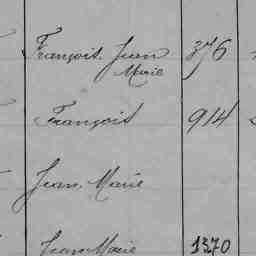 François. Jean 376
Marie
François 914
Jean. Marie
Jean Marie 1370